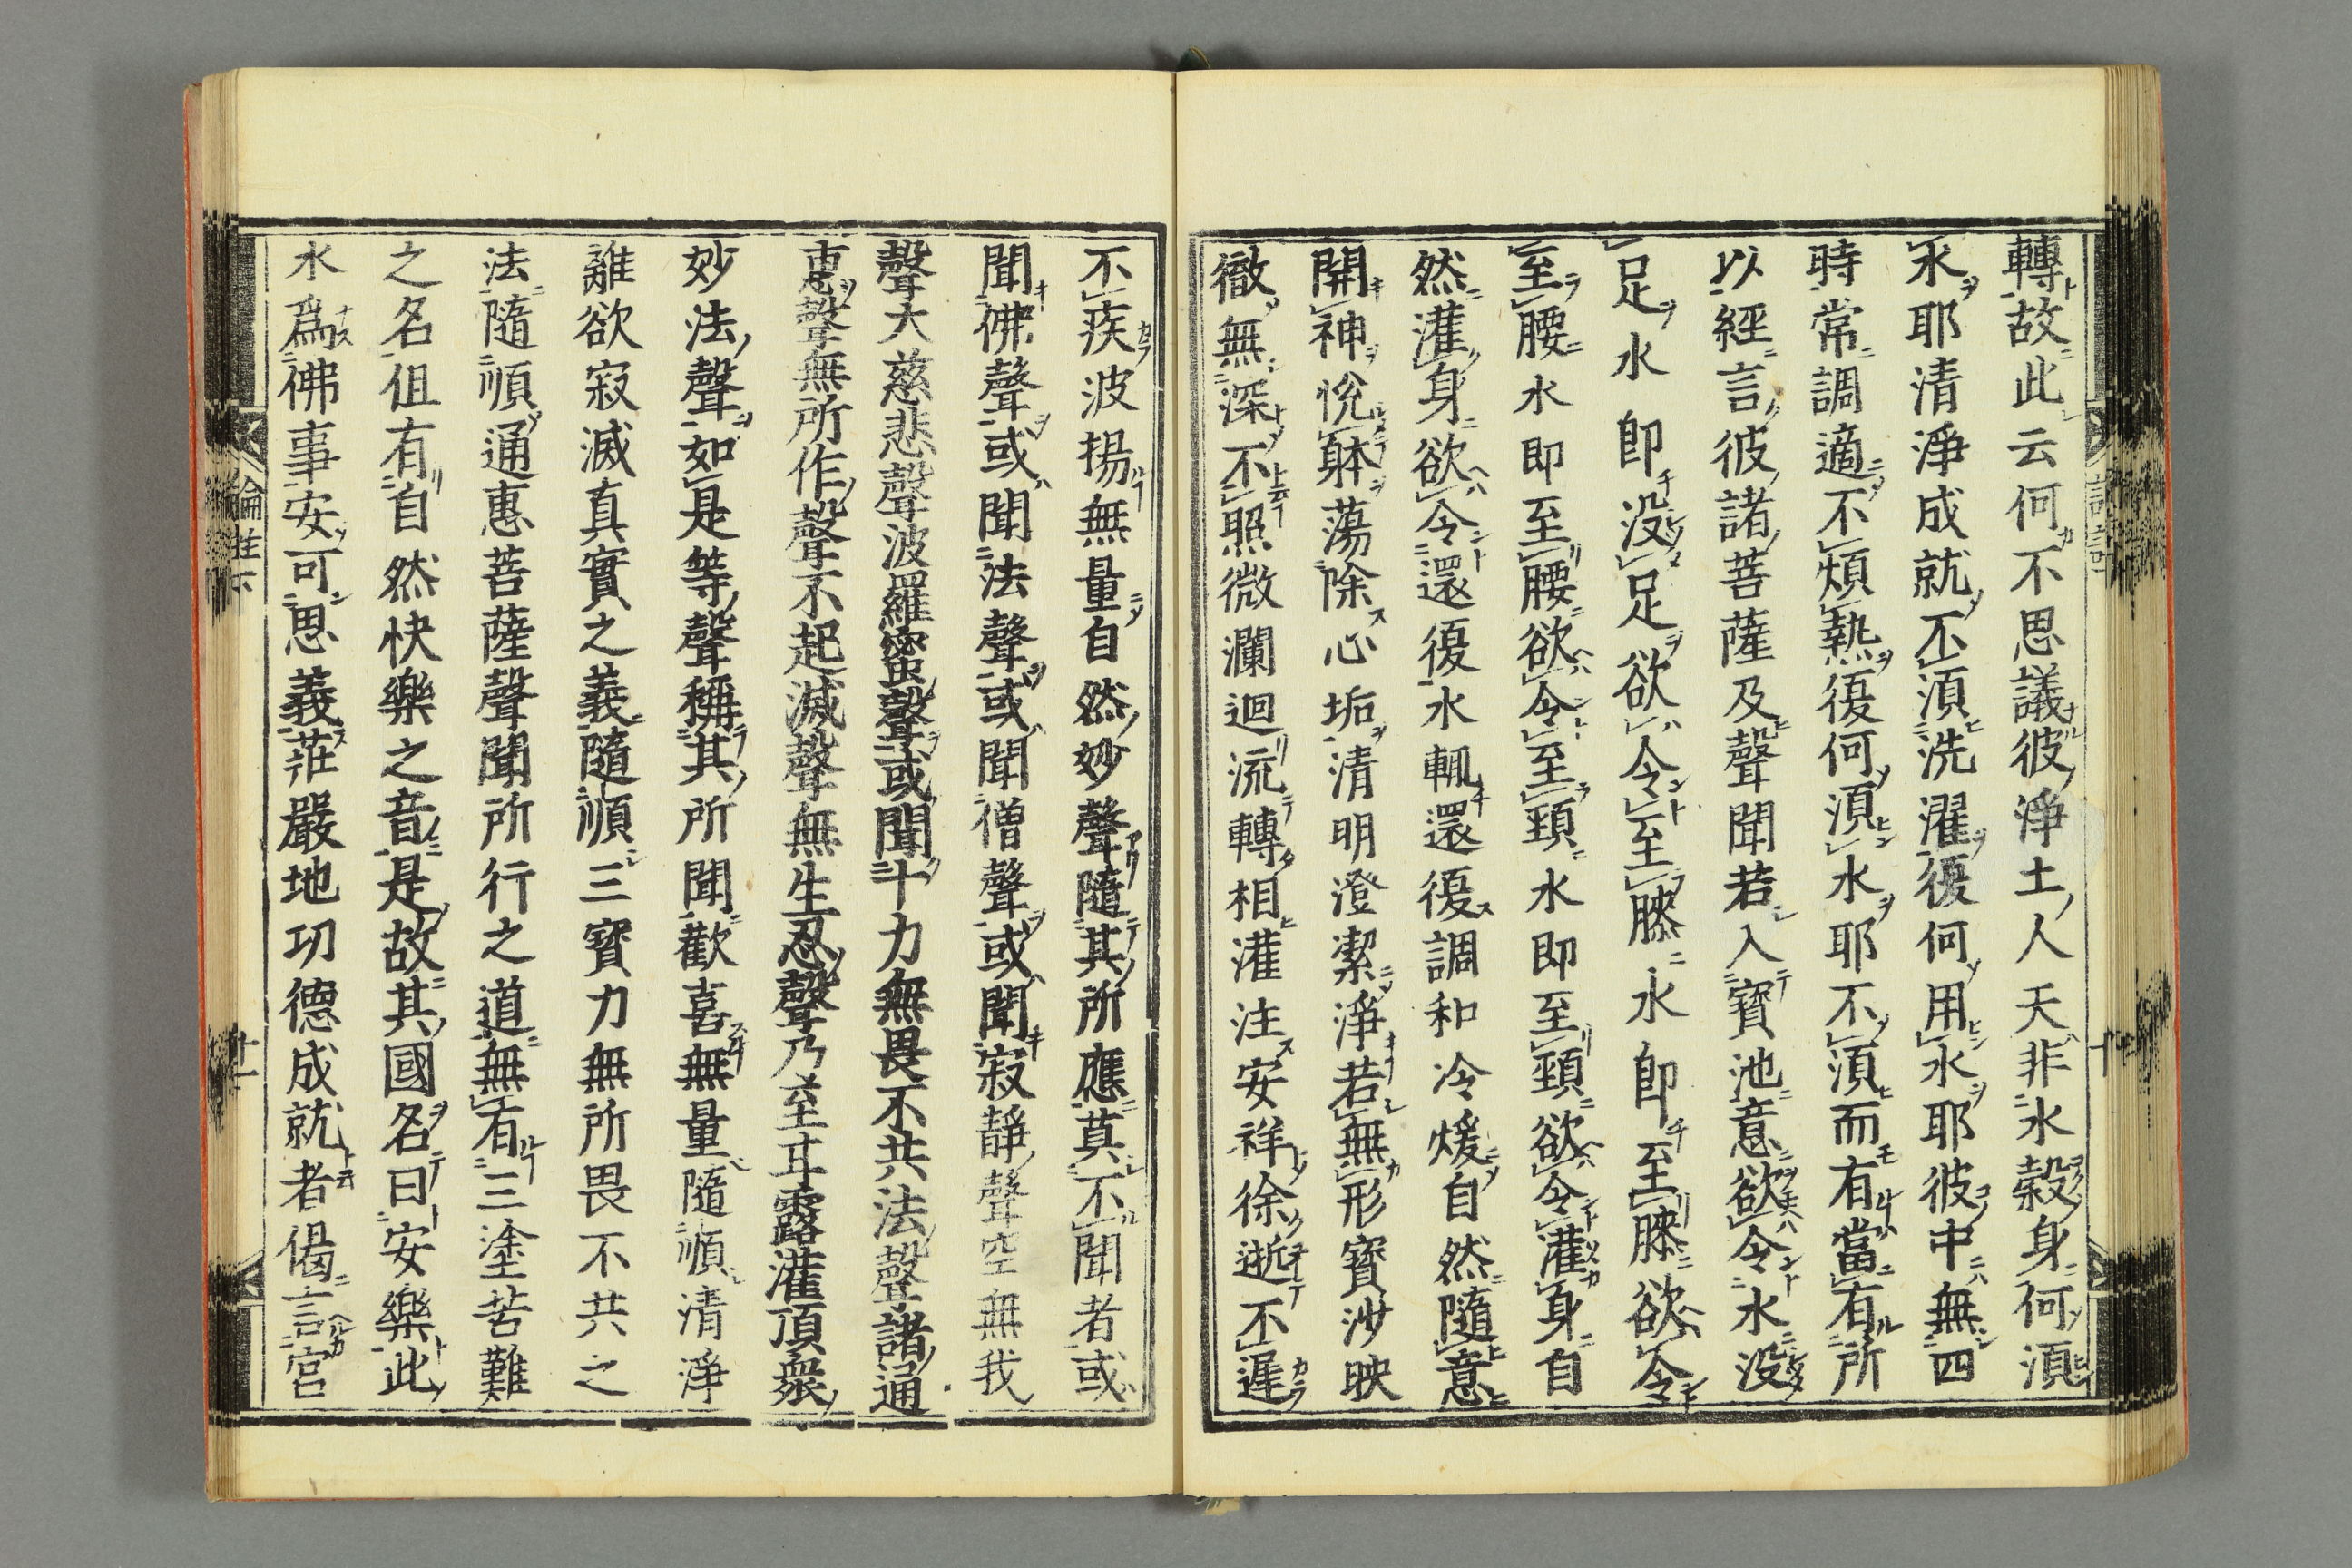 轉故此云何不思議彼淨土人天非水糓身何湏
水耶清淨成就不湏洗濯復何用水耶彼中無四
時常調適不煩熱復何湏水耶不湏而有當有所
以經言彼諸菩薩及聲聞若入寳池意欲令水没
足水即没足欲令至膝水即至膝欲令
至腰水即至腰欲令至頚水即至頚欲令灌身自
然灌身欲令還復水輒還復調和冷煖自然隨意
開神悅躰蕩除心垢清明澄潔淨若無形寳沙映
徹無深不照微瀾迴流轉相灌注安祥徐逝不遲
不疾波揚無量自然妙聲隨其所應莫不聞者或
聞佛聲或聞法聲或聞僧聲或聞寂静聲空無我
聲大慈悲聲波羅蜜聲或聞十力無畏不共法聲諸通
恵聲無所作聲不起滅聲無生忍聲乃至甘露灌頂衆
妙法聲如是等聲稱其所聞歡喜無量隨順清淨
離欲寂滅真實之義隨順三寳力無所畏不共之
法隨順通惠菩薩聲聞所行之道無有三塗苦難
之名但有自然快樂之音是故其國名曰安樂此
水為佛事安可思義莊嚴地功德成就者偈言宫
論註下
十二